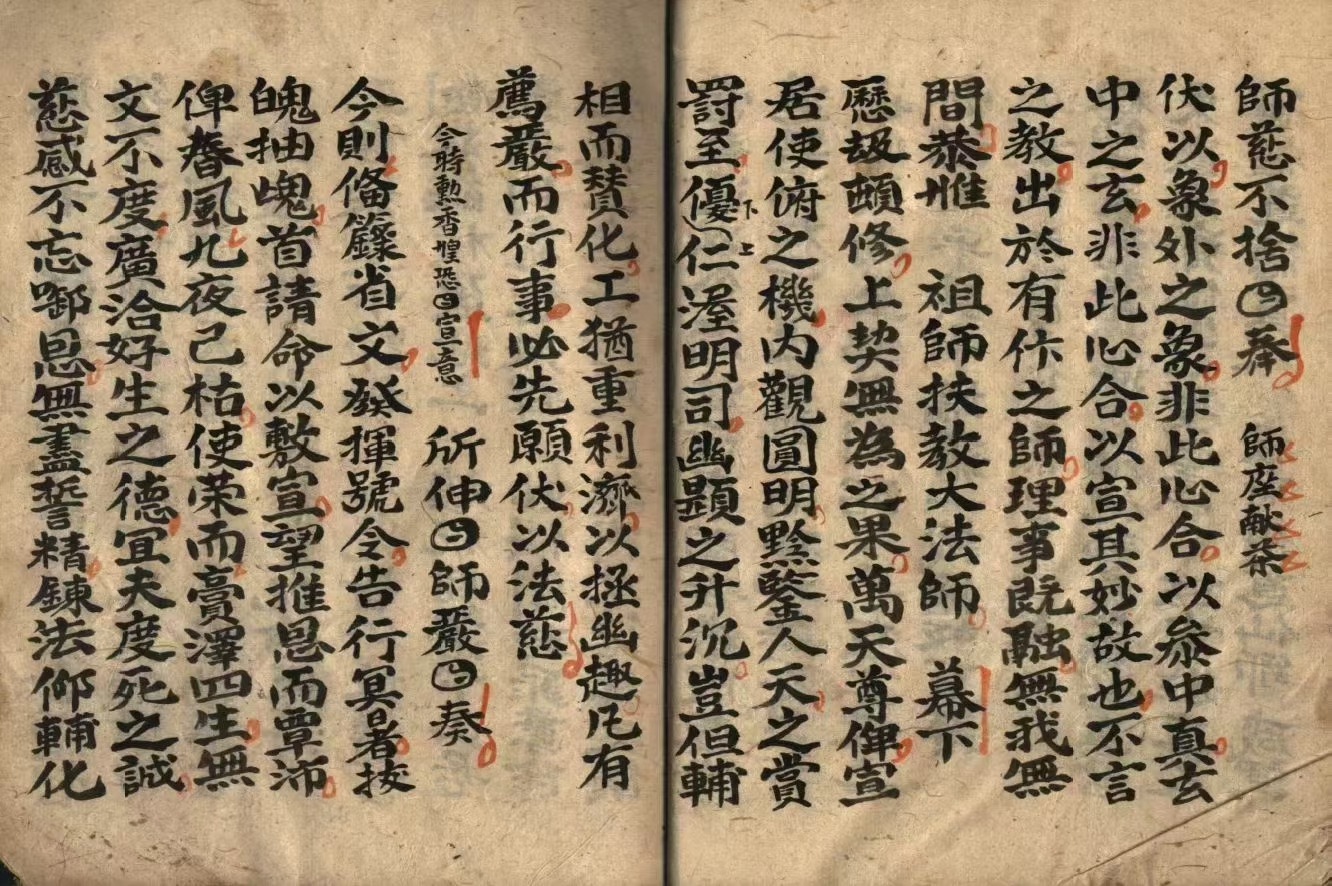 師慈不捨㊢奉　師座献茶
伏以象外之象非此心合以叅中真玄
中之玄非此心合以宣其妙故也不言
之教出於有作之師理事既融無我無
間恭惟　祖師扶教大法師　幕下
歷劫頓修上契無為之果萬天尊俾宣
居使俯之機内觀圓明黙鑒人天之賞
罰至優仁下上渥明司幽顕之升沉豈但輔
相而賛化工猶重利濟以拯幽趣凡有
薦嚴而行事必先願伏以法慈
今時勲香惶恐宣意　所伸師嚴奏
今則俻籙省文發揮號令告行冥晷拔
魄抽魂首請命以敷宣望推恩而覃沛
俾春風九夜已枯使荣而膏澤四生無
文不度廣洽好生之德冝夫度死之誠
慈感不忘啣恩無盡誓精錬法仰輔化